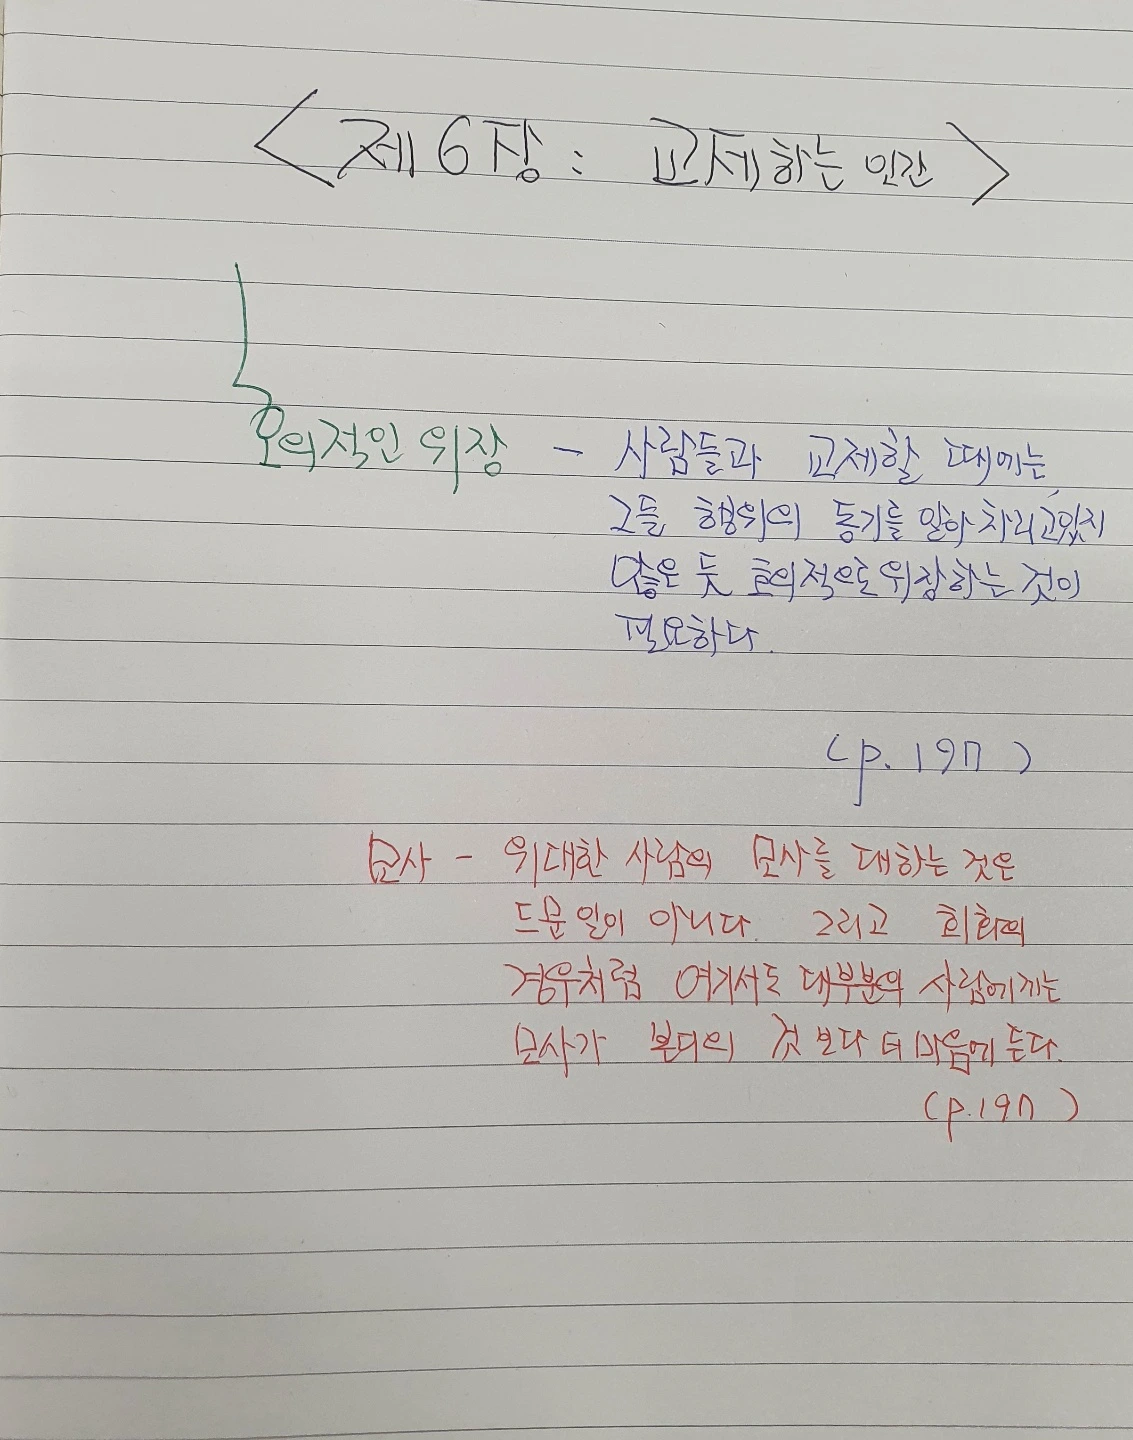 <제6장: 교제하는 인간>
호의적인 위장 - 사람들과 교제할 때에는
그들 행위의 동기를 알아 차리고있지
않은 듯 호의적으로 위장하는 것이
필요하다.
(p. 197)
모사 - 위대한 사람의 모사를 대하는 것은
드문 일이 아니다. 그리고 회화의
경우처럼 여기서도 대부분의 사람에게는
모사가 본디의 것 보다 더 마음에 든다.
(p.197)